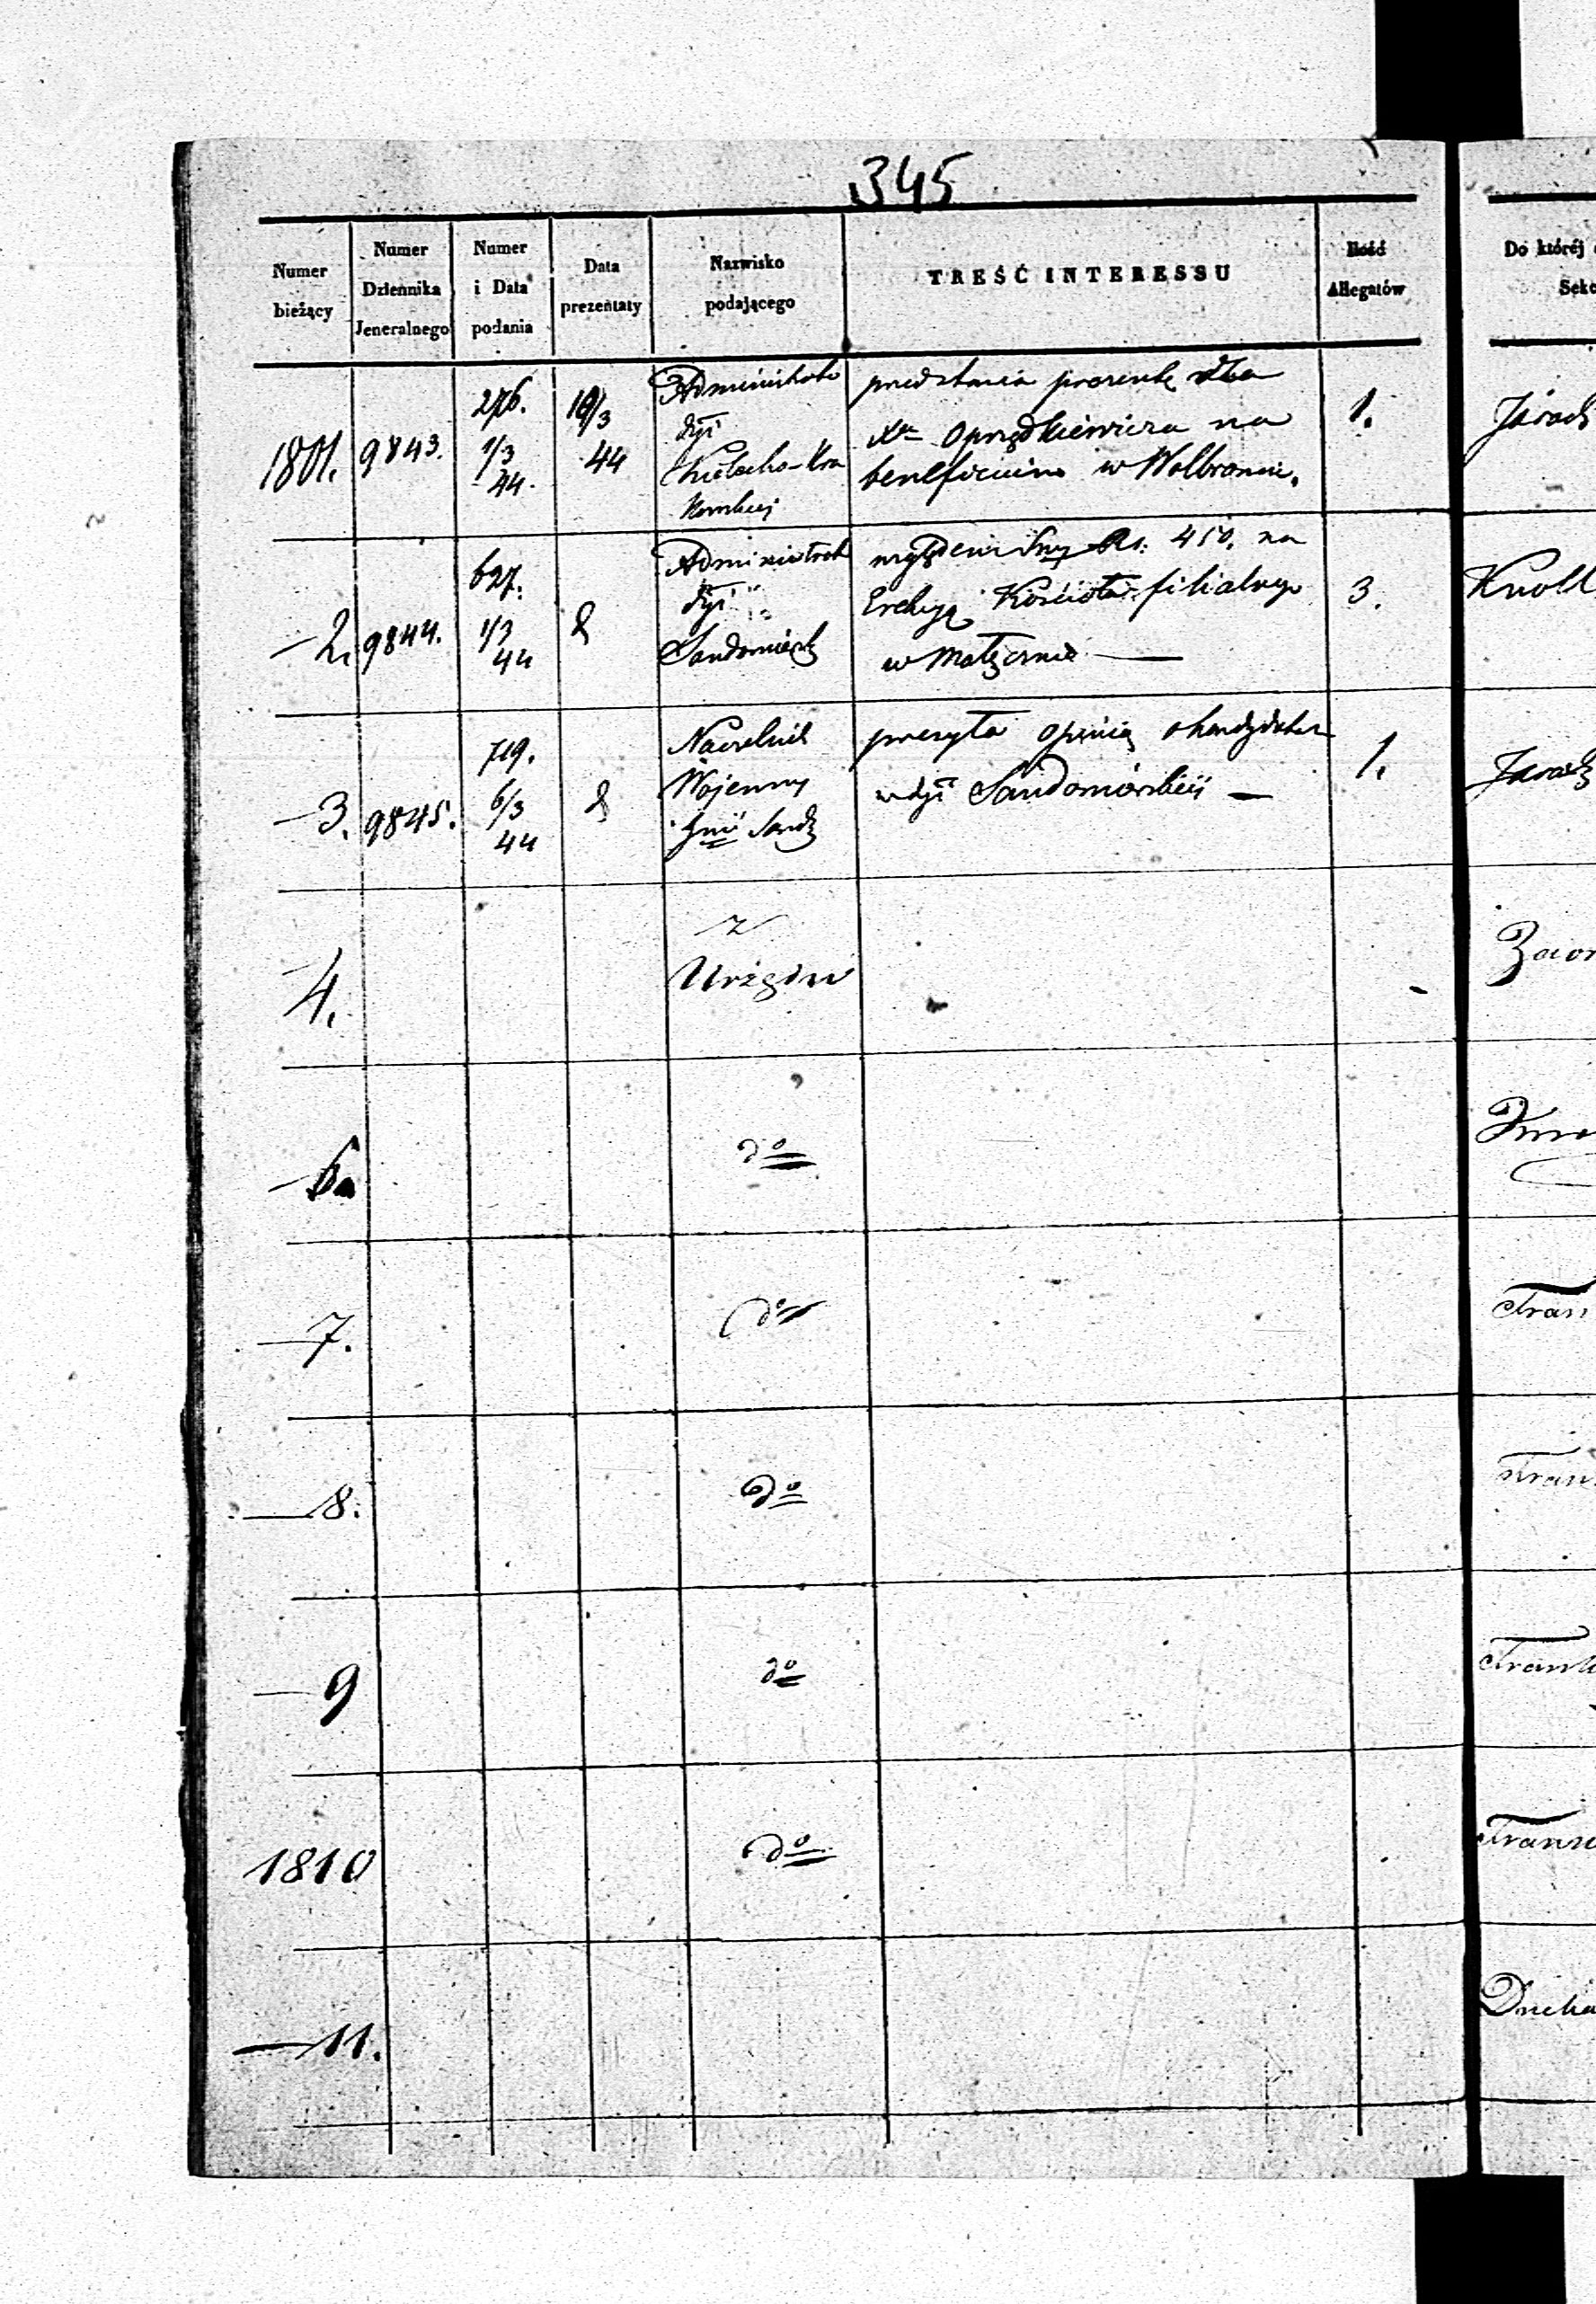 345
Numer
bieżący
Numer
Dziennika
Jeneralnego
Numer
i Data
podania
Data
prezentaty
Nazwisko
podającego
TREŚĆ INTERESSU
Ilość
Allegatów
Do któréj
Sekc
1801.
9843.
276.
1/3
44.
19/3
44
Administrato
dyi
Kielecko-Kra
kowskiej
przedstawia prezentę dla
Xa Oprządkiewicza na
beneficium w Wolbromie.
1.
2.
9844.
627.
1/3
44
d
Administrat
dyi
Sandomiersk
Rs. 450. na
Erekcyą Kościoła filialnego
w
3.
Knoll
3.
9845.
719.
6/3
44
d
Naczelnik
Wojenny
Gnii Sand
przesyła opinią o kandydatu
w dyi Sandomirskiej
1.
4.
z
Urzędu
6
do
7.
do
Tran
8.
do
Tran
9
do
1810
do
11.